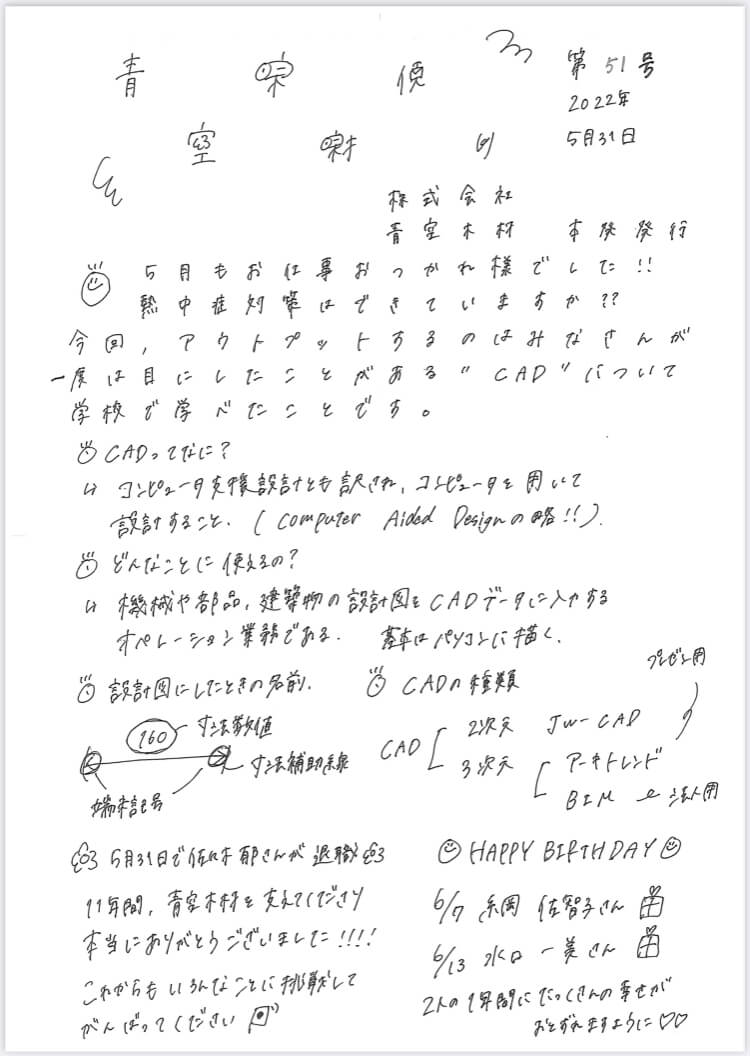 青空
第51号
2022年
5月31日
株式会社
青空木材 本発発行
5月もお仕事おつかれ様でした!!
熱中症対策はできていますか??
今回,アウトプットするのはみなさんが
一度は目にしたことがある"CAD"について
学校で学べたことです。
CADってなに?
↳ コンピュータ支援設計とも訳され,コンピュータを用いて
設計すること.(Computer Aided Designの略!!).
どんなことに使えるの?
↳ 機械や部品,建築物の設計図をCADデータに入力する
オペレーション業務である. 基本はパソコンに描く.
設計図にしたときの名前.
160
寸法数値
寸法補助線
端末記号
CADの種類
プレゼン用
CAD
2次元 JW-CAD
3次元
アーキトレンド
BIM
法人用
5月31日で佐々木 郁さんが退職
11年間,青空木材を支えてくださり
本当にありがとうございました!!!!
これからもいろんなことに挑戦して
がんばってください
HAPPY BIRTHDAY
6/7 糸岡 佐智子さん
6/13 水口 一美さん
2人の1年間にたっくさんの幸せが
おとずれますように♡♡